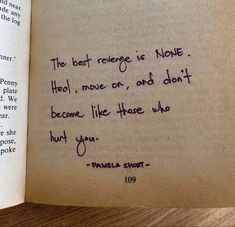 nd near
ade any
the log
nner.'
Penny
plate
d. We
were
ear.
re she
pose,
poke
The best revenge is NONE.
Heal, move on, and don't
become like those who
hurt you.
- PAMELA SHORT -
109